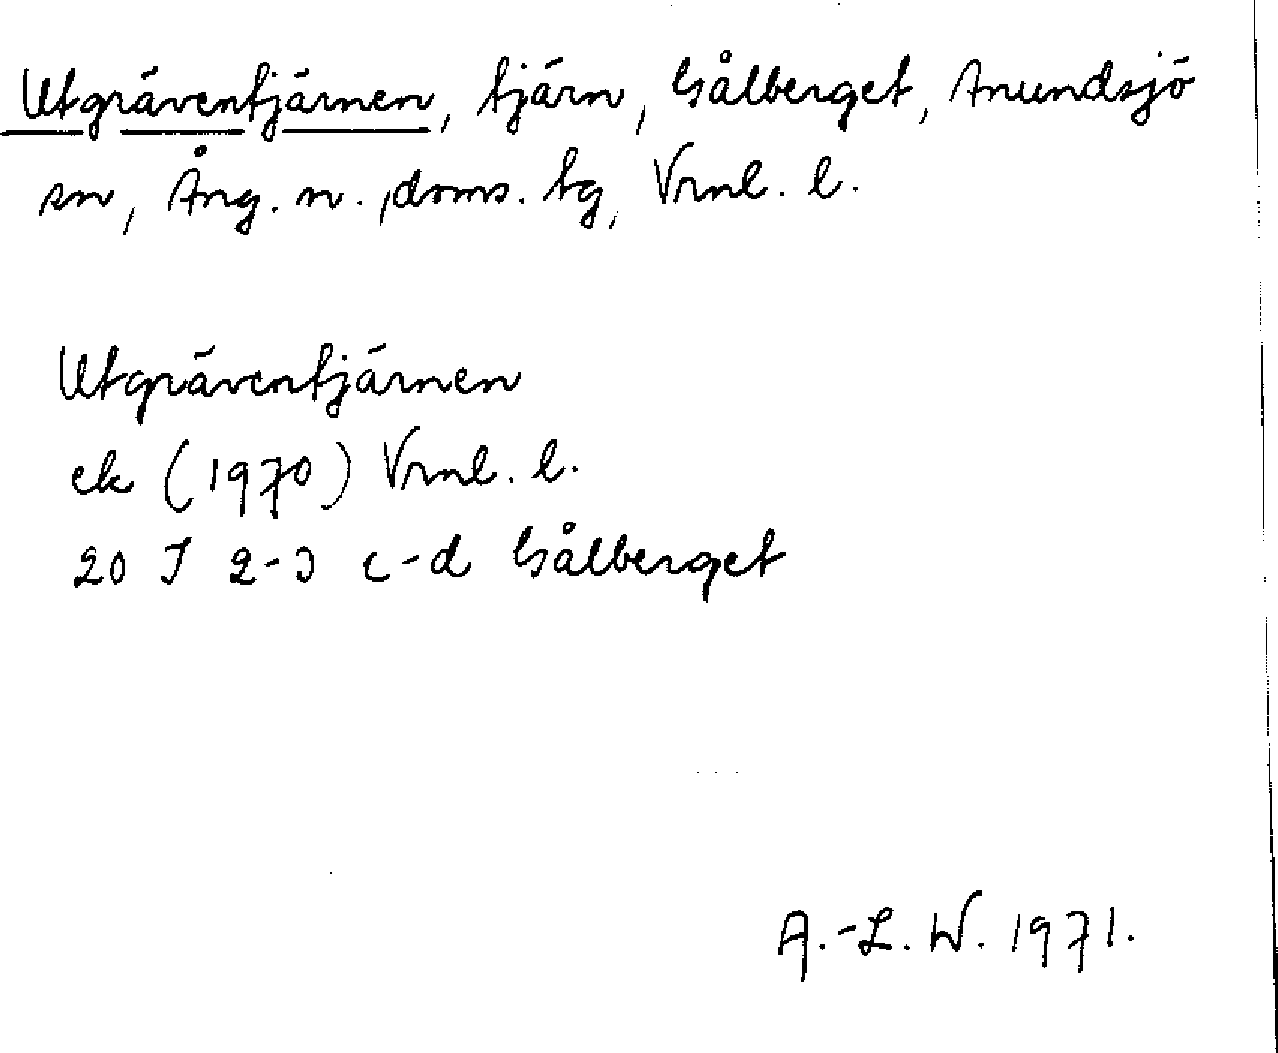 Utgräventjärnen, tjärn, Gålberget, Anundsjö
sn, Ång. n. doms. tg, Vrml. l.
Utgräventjärnen
ek (1970) Vrml. l.
20 J 2-3 c-d Gålberget
A.-L. W. 1971.